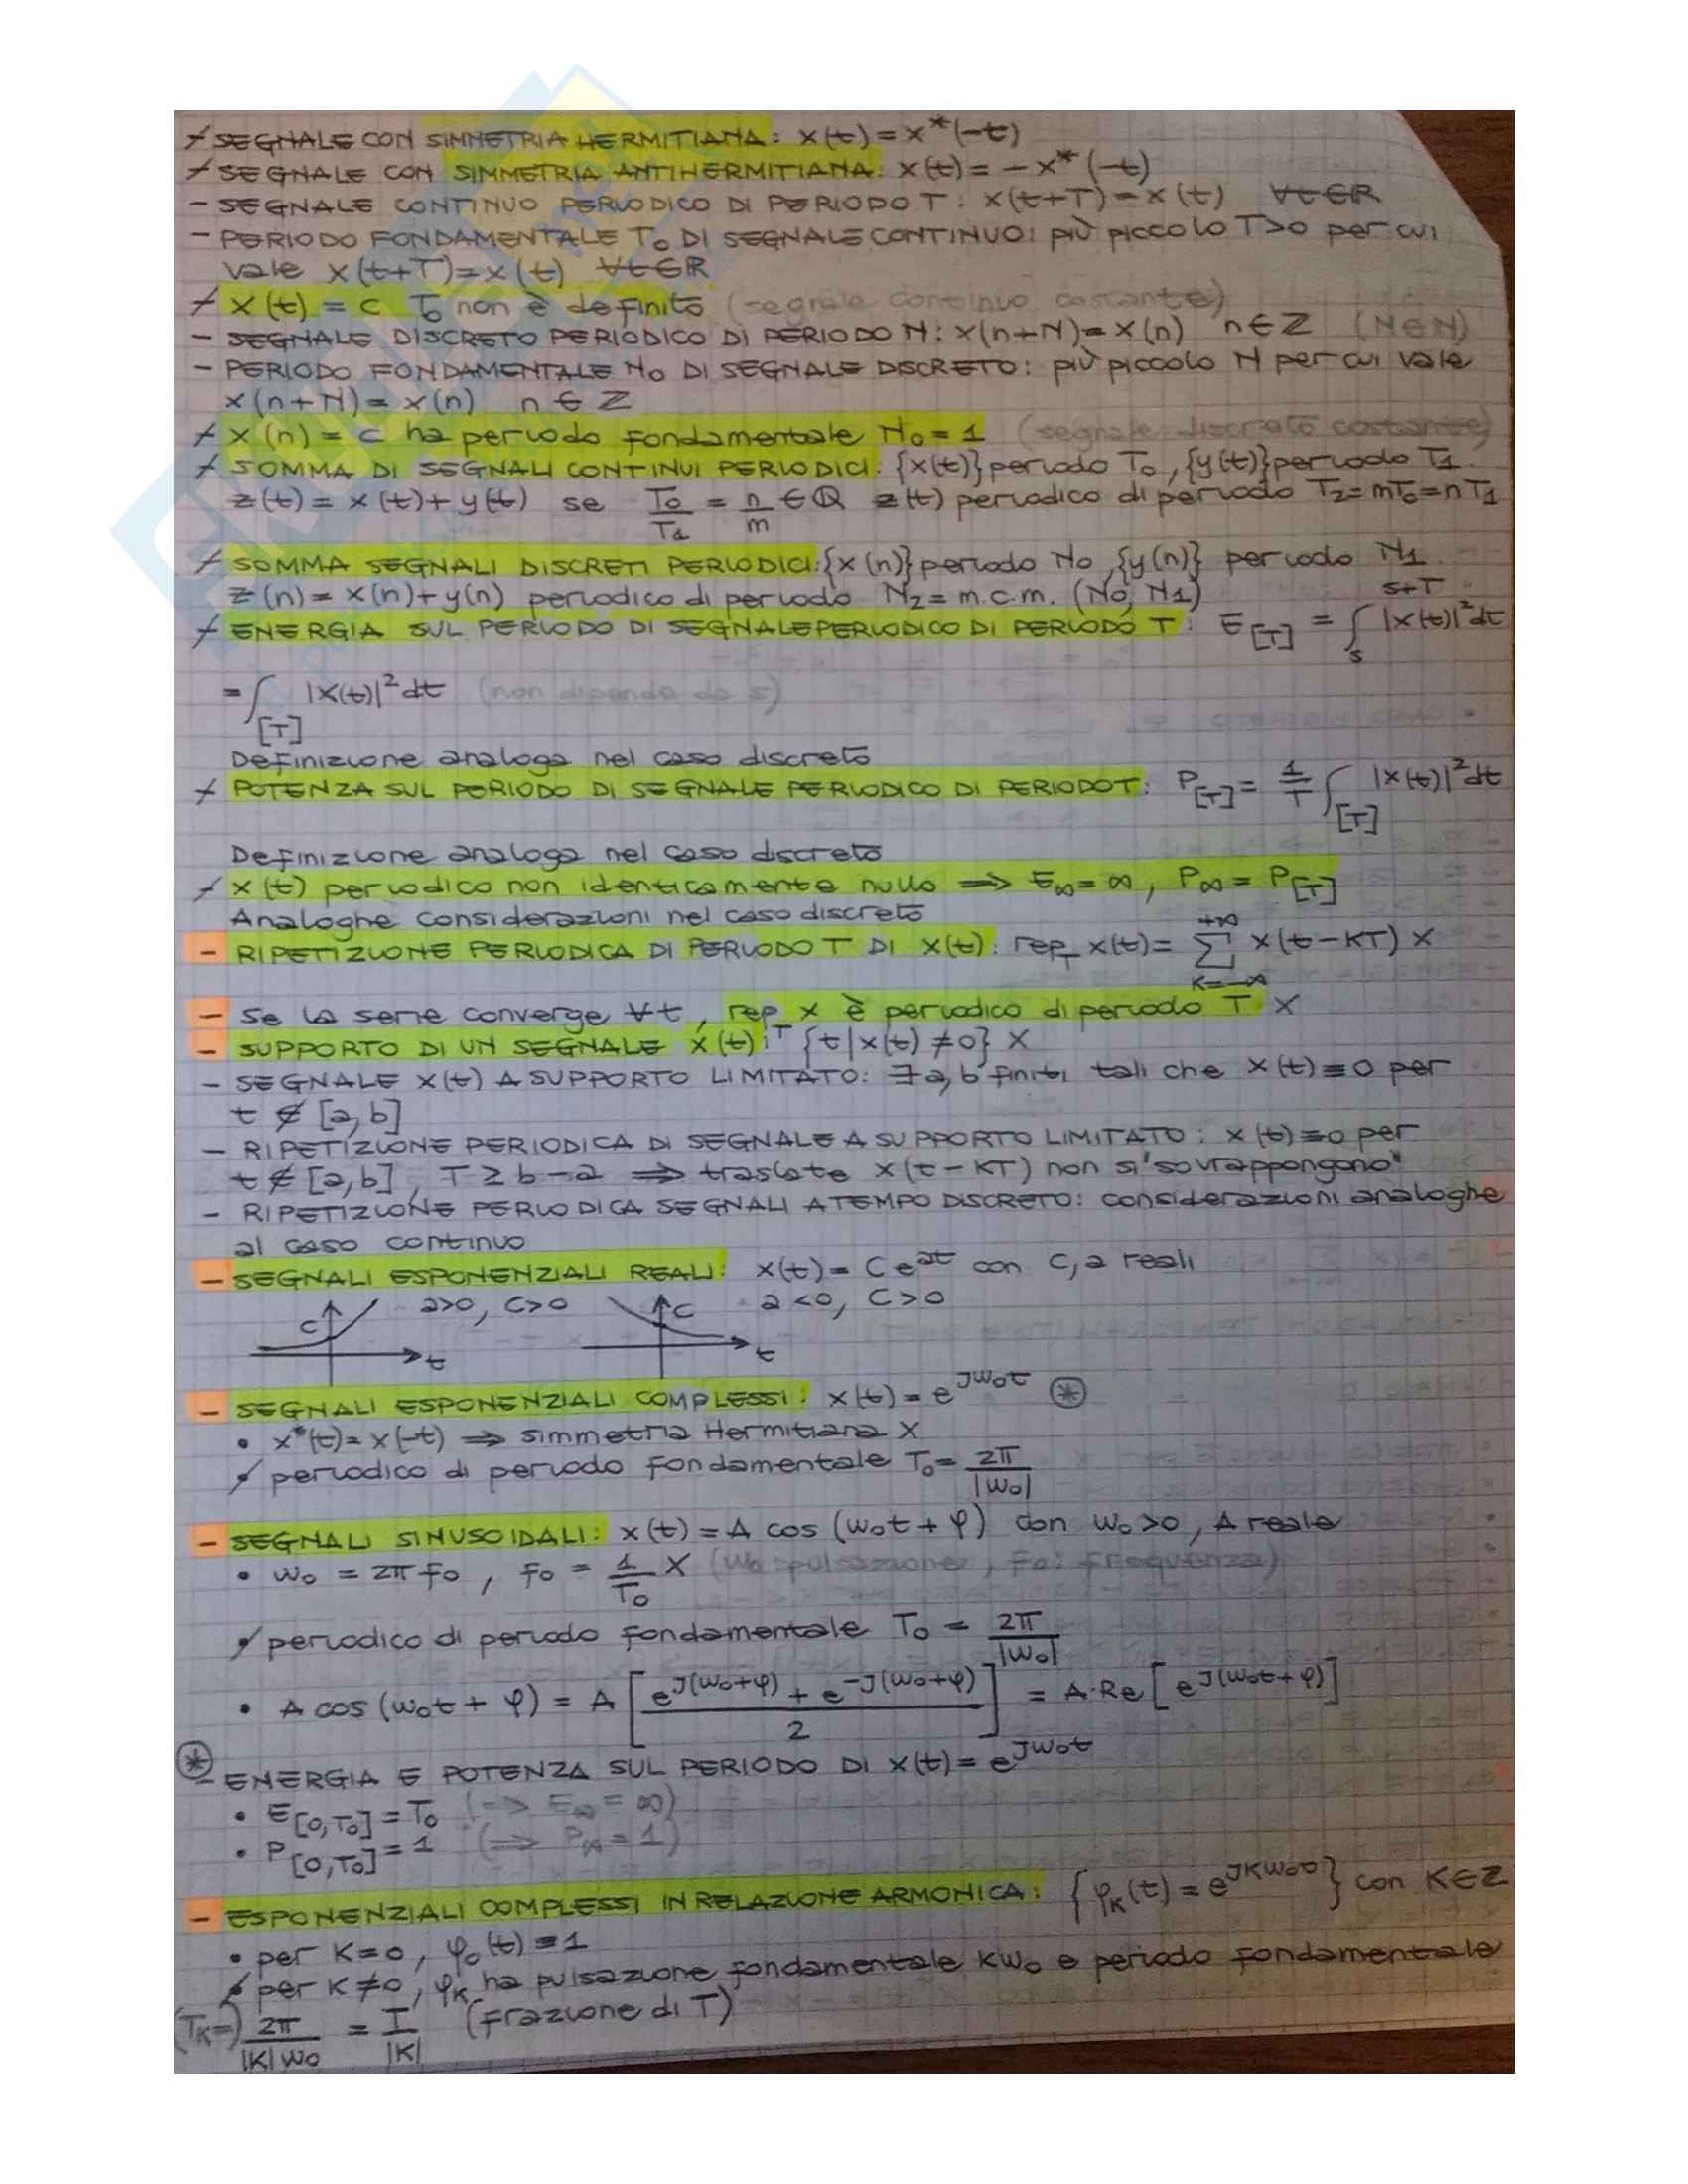 SEGNALE CON SIMMETRIA HERMITIANA: x(t) = x*(-t)
SEGNALE CON SIMMETRIA ANTIHERMITIANA: x(t) = -x*(-t)
- SEGNALE CONTINUO PERIODICO DI PERIODO T: x(t+T) = x(t) ∀t∈R
- PERIODO FONDAMENTALE T₀ DI SEGNALE CONTINUO: più piccolo T>0 per cui
vale x(t+T) = x(t) ∀t∈R
x(t) = c T₀ non è definito (segnale continuo costante)
- SEGNALE DISCRETO PERIODICO DI PERIODO N: x(n+N) = x(n) n∈Z (N∈N)
- PERIODO FONDAMENTALE N₀ DI SEGNALE DISCRETO: più piccolo N per cui vale
x(n+N) = x(n) n∈Z
x(n) = c ha periodo fondamentale N₀ = 1 (segnale discreto costante)
SOMMA DI SEGNALI CONTINUI PERIODICI: {x(t)} periodo T₀, {y(t)} periodo T₁.
z(t) = x(t) + y(t) se T₀/T₁ = n/m ∈ Q z(t) periodico di periodo T₂ = mT₀ = nT₁
SOMMA SEGNALI DISCRETI PERIODICI: {x(n)} periodo N₀, {y(n)} periodo N₁.
z(n) = x(n) + y(n) periodico di periodo N₂ = m.c.m. (N₀, N₁)
ENERGIA SUL PERIODO DI SEGNALE PERIODICO DI PERIODO T: E[T] = ∫ₛ^(s+T) |x(t)|² dt
= ∫[T] |x(t)|² dt (non dipende da s)
Definizione analoga nel caso discreto
POTENZA SUL PERIODO DI SEGNALE PERIODICO DI PERIODO T: P[T] = 1/T ∫[T] |x(t)|² dt
Definizione analoga nel caso discreto
x(t) periodico non identicamente nullo ⟹ E∞ = ∞, P∞ = P[T]
Analoghe considerazioni nel caso discreto
- RIPETIZIONE PERIODICA DI PERIODO T DI x(t): rep_T x(t) = Σ_{K=-∞}^{+∞} x(t-KT) X
- Se la serie converge ∀t, rep_T x è periodico di periodo T X
- SUPPORTO DI UN SEGNALE x(t): {t | x(t) ≠ 0} X
- SEGNALE x(t) A SUPPORTO LIMITATO: ∃ a, b finiti tali che x(t) ≡ 0 per
t ∉ [a, b]
- RIPETIZIONE PERIODICA DI SEGNALE A SUPPORTO LIMITATO: x(t) ≡ 0 per
t ∉ [a, b], T ≥ b - a ⟹ traslate x(t - KT) non si "sovrappongono"
- RIPETIZIONE PERIODICA SEGNALI A TEMPO DISCRETO: considerazioni analoghe
al caso continuo
- SEGNALI ESPONENZIALI REALI: x(t) = C e^{at} con C, a reali
C a>0, C>0 t C a<0, C>0 t
- SEGNALI ESPONENZIALI COMPLESSI: x(t) = e^{Jω₀t} ⊛
• x*(t) = x(-t) ⟹ simmetria Hermitiana X
• periodico di periodo fondamentale T₀ = 2π/|ω₀|
- SEGNALI SINUSOIDALI: x(t) = A cos (ω₀t + φ) con ω₀>0, A reale
• ω₀ = 2πf₀, f₀ = 1/T₀ X (ω₀: pulsazione, f₀: frequenza)
• periodico di periodo fondamentale T₀ = 2π/|ω₀|
• A cos (ω₀t + φ) = A [(e^{J(ω₀+φ)} + e^{-J(ω₀+φ)})/2] = A·Re[e^{J(ω₀t+φ)}]
⊛ - ENERGIA E POTENZA SUL PERIODO DI x(t) = e^{Jω₀t}
• E[0,T₀] = T₀ (⟹ E∞ = ∞)
• P[0,T₀] = 1 (⟹ P∞ = 1)
- ESPONENZIALI COMPLESSI IN RELAZIONE ARMONICA: {φ_K(t) = e^{JKω₀t}} con K∈Z
• per K=0, φ₀(t) ≡ 1
• per K≠0, φ_K ha pulsazione fondamentale Kω₀ e periodo fondamentale
(T_K =) 2π/(|K|ω₀) = T/|K| (frazione di T)